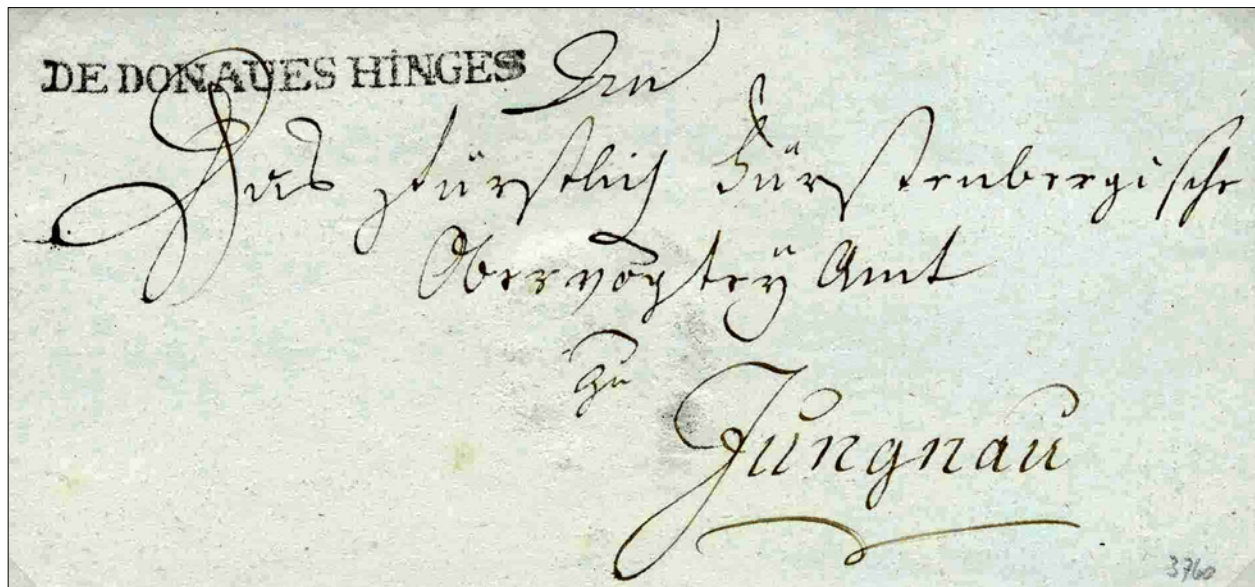 DE DONAUESHİNGES
An
Das Fürstlich Fürstenbergische
Obervögtey Amt
zu
Jungnau
3760